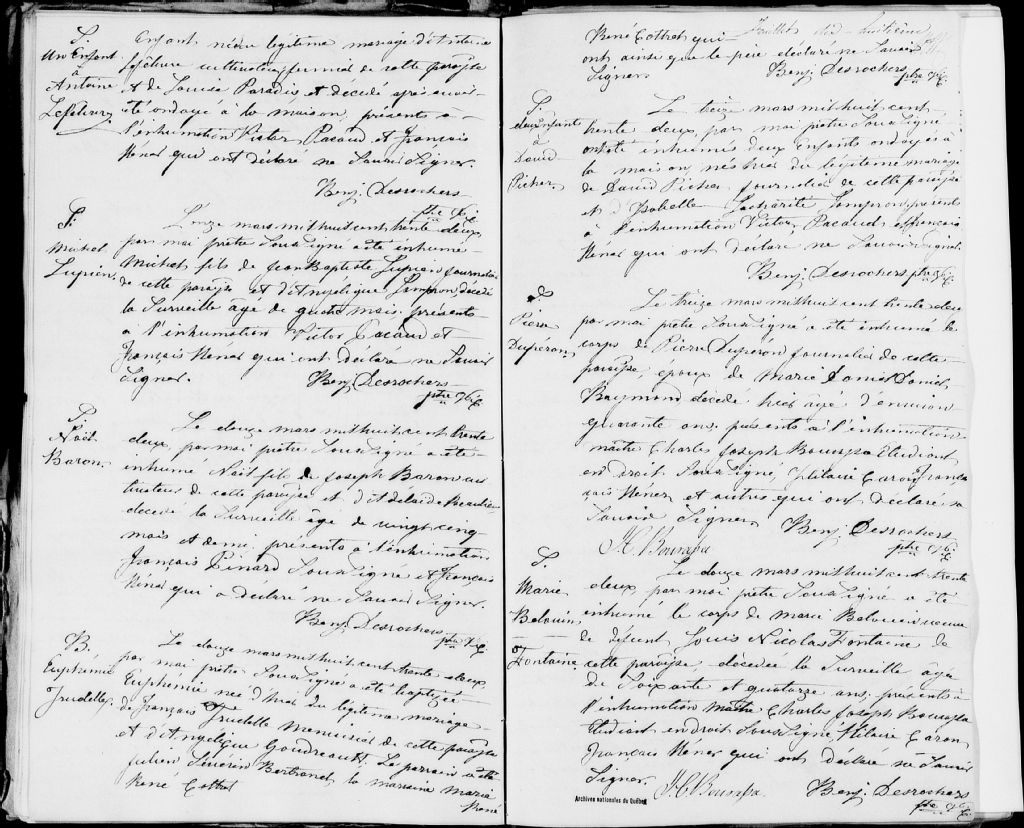 S.
Un Enfant
à
Antoine
Lefebvre
Enfant né du légitime mariage d'Antoine
Lefebvre cultivateur fermier de cette paroisse
et de Louise Paradis et décédé après avoir
été ondoyé à la maison, présents à
l'inhumation Victor Pacaud et François
Héner qui ont déclaré ne savoir signer.
Benj. Desrochers
ptre
S.
Michel
Lupien
L'onze mars mil huit cent trente deux,
par moi prêtre soussigné a été inhumé
Michel fils de Jean Baptiste Lupien journalier
de cette paroisse et d'Angelique Lampron, décédé
la surveille âgé de quatre mois présents
a l'inhumation Victor Pacaud et
François Héner qui ont déclaré ne savoir
signer.
Benj. Desrochers
ptre
S.
Noël
Baron
Le douze mars mil huit cent trente
deux, par moi prêtre soussigné a été
inhumé Noël fils de Joseph Baron
de cette paroisse et d'Adelaide
décédé la surveille âgé de vingt cinq
mois et demi, présents à l'inhumation
François Pinard soussigné et François
Héner qui a déclaré ne savoir signer.
Benj. Desrochers
ptre
B.
Euphémie
Trudelle
Le douze mars mil huit cent trente deux,
par moi prêtre soussigné a été baptizée
Euphémie née d'hier du légitime mariage
de François Trudelle menuisier de cette paroisse
et d'Angelique Goudreault. Le parrain a été
Julien Séverin Bertrand, la marraine Marie
René Cottret
René
René Cottret qui
ont ainsi que le père déclaré ne savoir
signer
Benj. Desrochers
ptre
S.
deux Enfants
à
David
Picher
Le treize mars mil huit cent
trente deux, par moi prêtre soussigné
ont été inhumés deux Enfants ondoyés à
la maison, nés hier du légitime mariage
de David Picher journalier de cette paroisse
et d'Isabelle Lacharité Lampron, présents
à l'inhumation Victor Pacaud et François
Héner qui ont déclaré ne savoir signer.
Benj. Desrochers ptre
S.
Pierre
Dupéron
Le treize mars mil huit cent trente deux
par moi prêtre soussigné a été inhumé le
corps de Pierre Dupéron journalier de cette
paroisse, epoux de Marie Daniel
Raymond décédé hier âgé d'environ
quarante ans, présents à l'inhumation
maître Charles Joseph Bourassa Etudiant
en droit soussigné, Hilaire Caron, Fran
çois Héner et autres qui ont déclaré ne
savoir signer
Benj. Desrochers
ptre
S.
Marie
Belouin
Fontaine
Le douze mars mil huit cent trente
deux par moi prêtre soussigné a été
inhumé le corps de Marie Belouin veuve
de défunt Louis Nicolas Fontaine de
cette paroisse décédée la surveille âgée
de soixante et quatorze ans, présents à
l'inhumation maître Charles Joseph Bourassa
Etudiant en droit soussigné, Hilaire Caron
François Héner qui ont déclaré ne savoir
signer.
Benj. Desrochers
ptre
Archives nationales du Québec